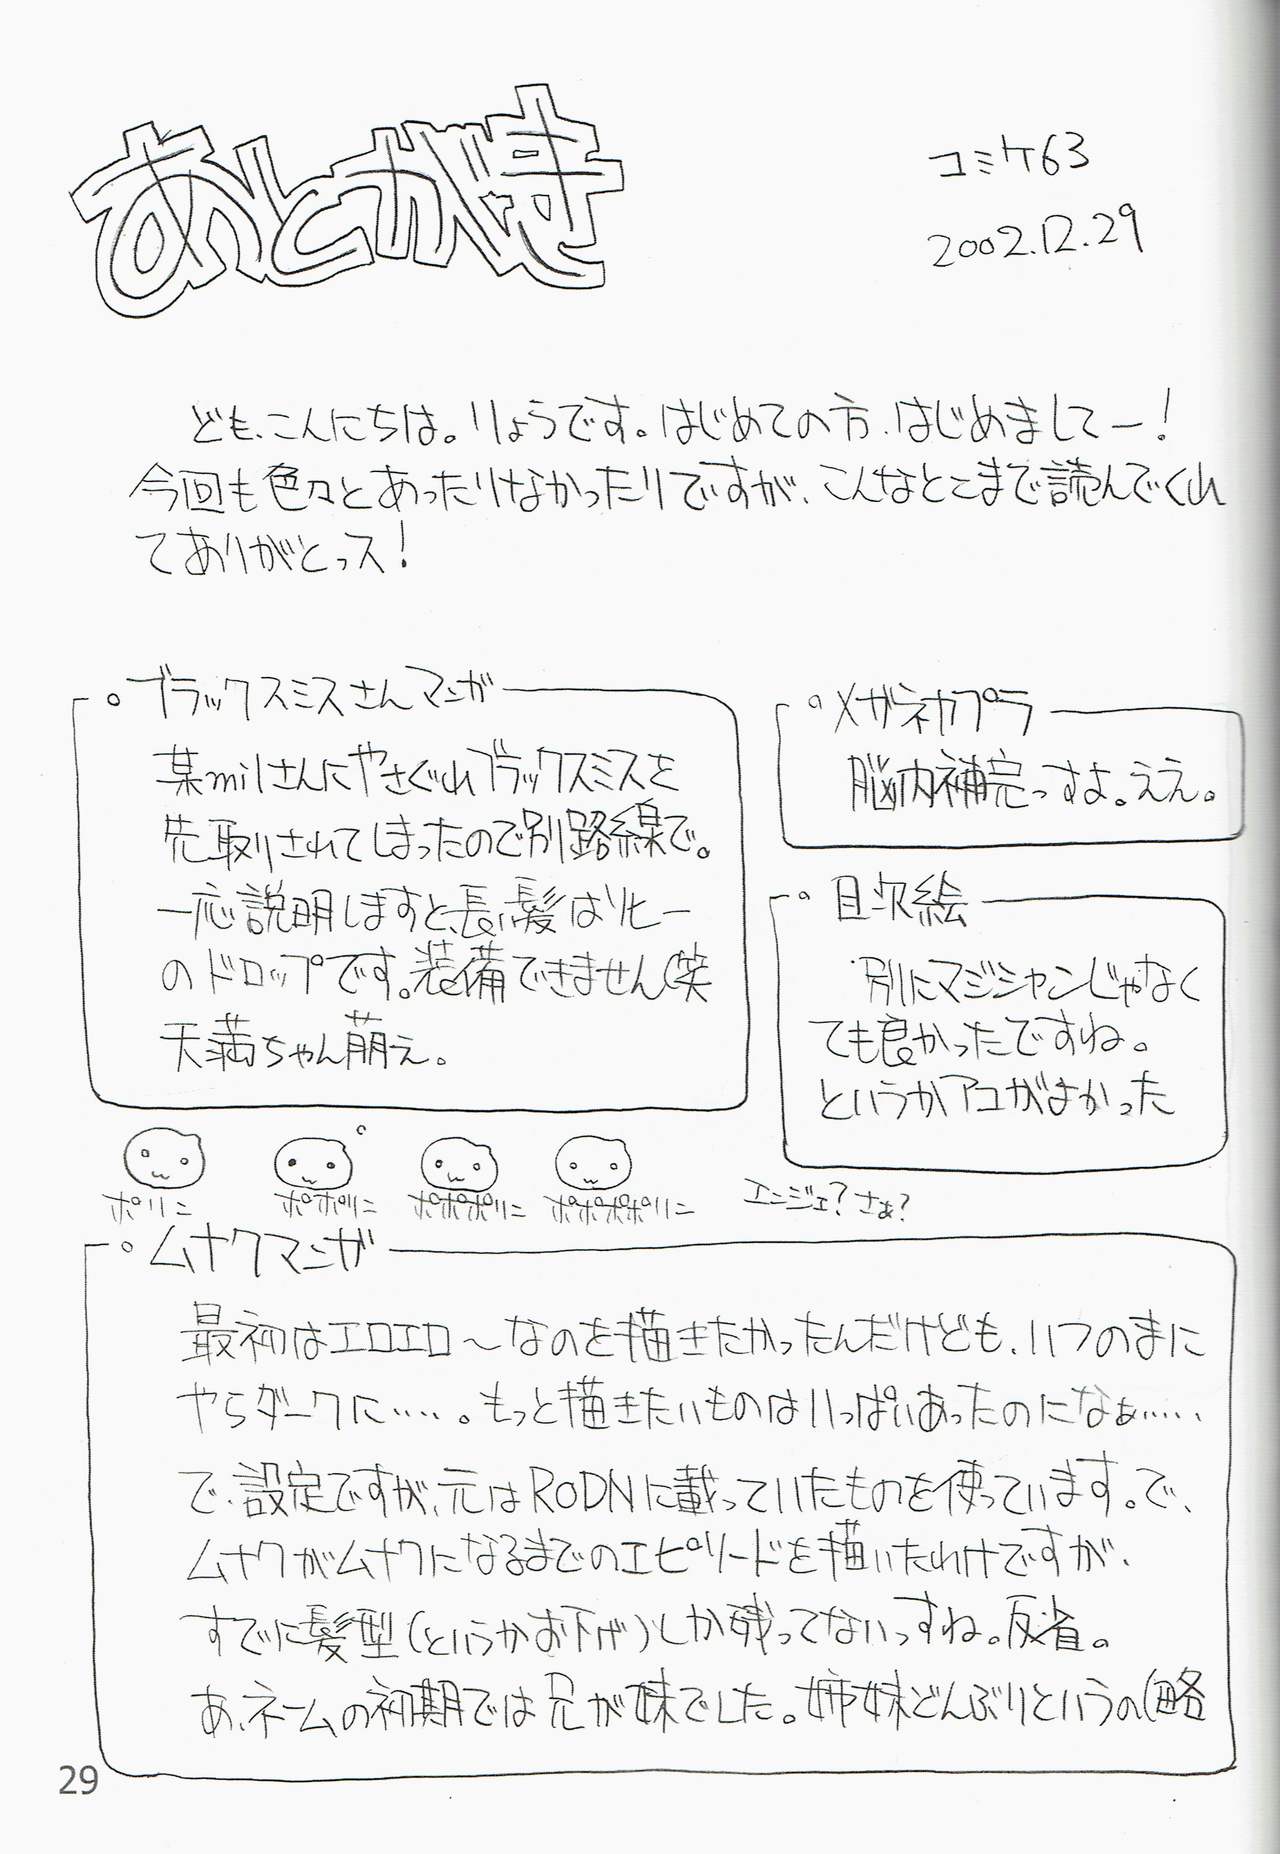 あとがき
コミケ63
2002.12.29
ども、こんにちは。りょうです。はじめての方、はじめましてー！
今回も色々とあったりなかったりですが、こんなとこまで読んでくれ
てありがとっス！
・ブラックスミスさんマンガ
某milさんにやさぐれブラックスミスを
先取りされてしまったので別路線で。
一応説明しますと、長い髪はソヒー
のドロップです。装備できません(笑
天満ちゃん萌え。
・メガネカプラ
脳内補完っすよ。ええ。
・目次絵
別にマジシャンじゃなく
ても良かったですね。
というかアコがよかった
ポリン
ポポリン
ポポポリン
ポポポポリン
エンジェ？さぁ？
・ムナクマンガ
最初はエロエロ〜なのを描きたかったんだけども、いつのまに
やらダークに……。もっと描きたいものはいっぱいあったのになぁ……
で、設定ですが、元はRODNに載っていたものを使っています。で、
ムナクがムナクになるまでのエピソードを描いたわけですが、
すでに髪型(というかお下げ)しか残ってないっすね。反省。
あ、ネームの初期では兄が妹でした。姉妹どんぶりというの(略
29